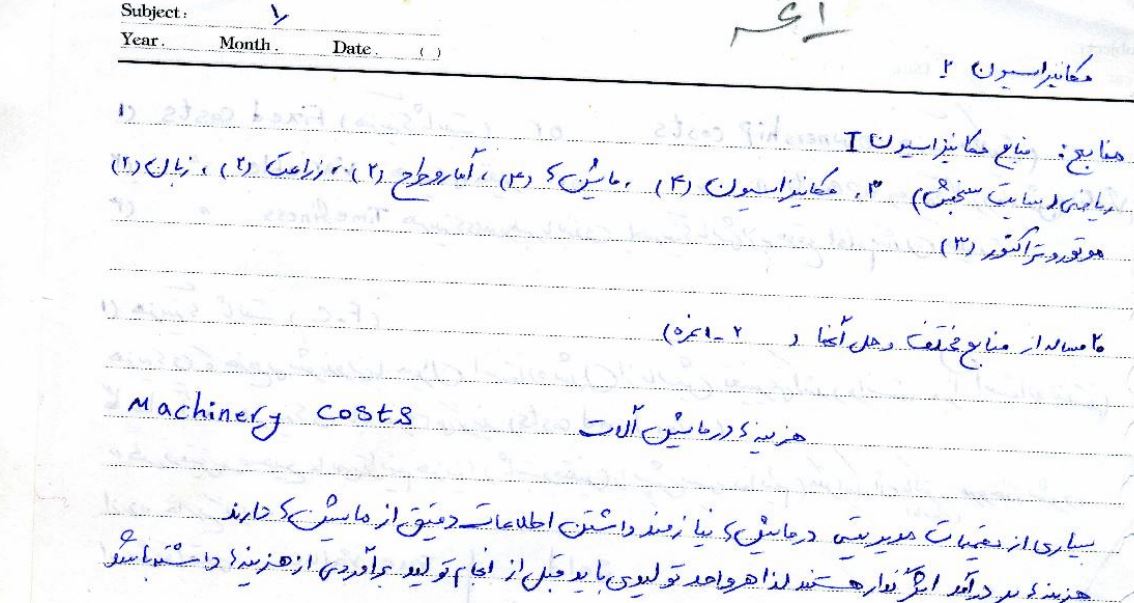 Subject: ۱
Year. Month. Date. ( )
مکانیزاسیون ۲
منابع: منابع مکانیزاسیون I
ریاضی (سایت سنجش) ۳، مکانیزاسیون (۴)، ماشین‌ها (۳)، آمار و طرح (۲)، زراعت (۲)، زبان (۲)
موتور و تراکتور (۳)
۲۰ مساله از منابع مختلف و حل آنها ( ۲-۱ نمره)
هزینه‌ها در ماشین آلات Machinery costs
بسیاری از تصمیمات مدیریتی در ماشین‌ها نیازمند داشتن اطلاعات دقیق از ماشین‌ها دارند
هزینه‌ها بر درآمد اثرگذار هستند لذا هر واحد تولیدی باید قبل از انجام تولید برآوردی از هزینه‌ها داشته باشد